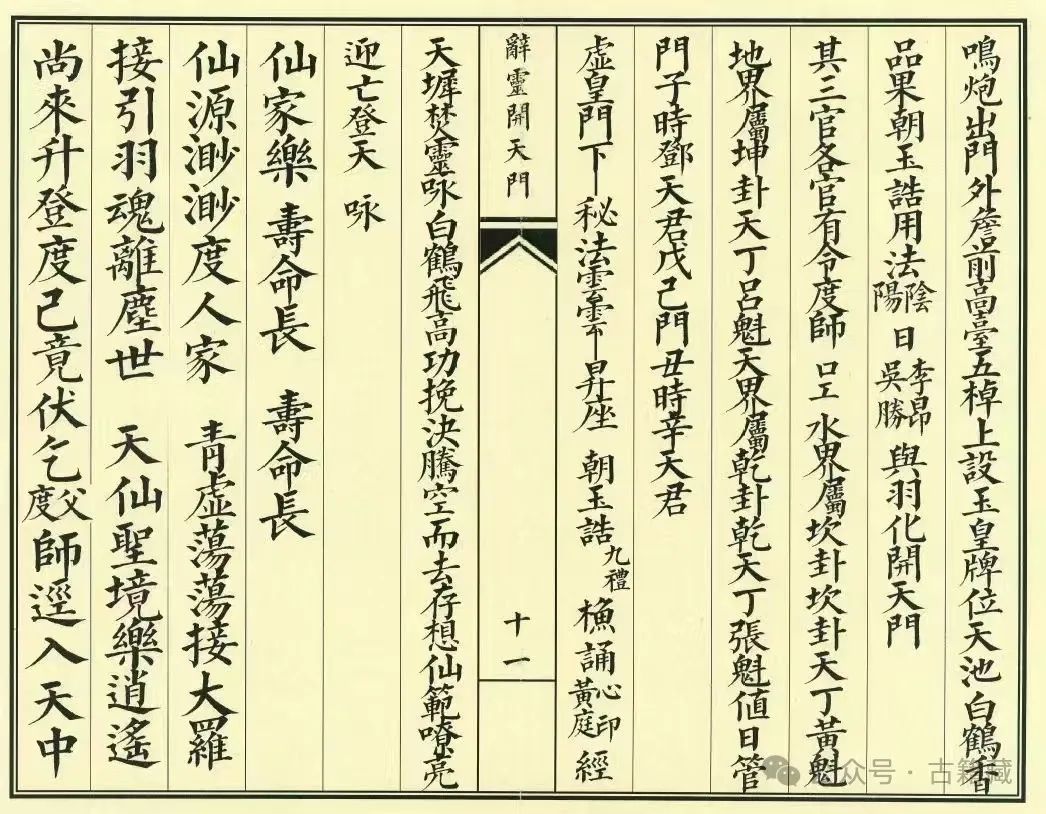 鳴炮出門外詹前高臺五棹上設玉皇牌位天池白鶴香
品果朝玉誥用法陰陽日李昂吳勝與羽化開天門
其三官各官有令度師 口工 水界屬坎卦坎卦天丁黃魁
地界屬坤卦天丁呂魁天界屬乾卦乾天丁張魁值日管
門子時鄧天君戊己門丑時辛天君
虛皇門下 秘法雲雲 昇座 朝玉誥九禮 樵誦心印黃庭 經
辭靈開天門
十一
天墀焚靈咏白鶴飛高功挽決騰空而去存想仙範嘹亮
迎亡登天 咏
仙家樂 壽命長 壽命長
仙源渺渺度人家 青虛蕩蕩接大羅
接引羽魂離塵世 天仙聖境樂逍遙
尚來升登度已竟伏乞父度師逕入天中
公众号·古籍藏